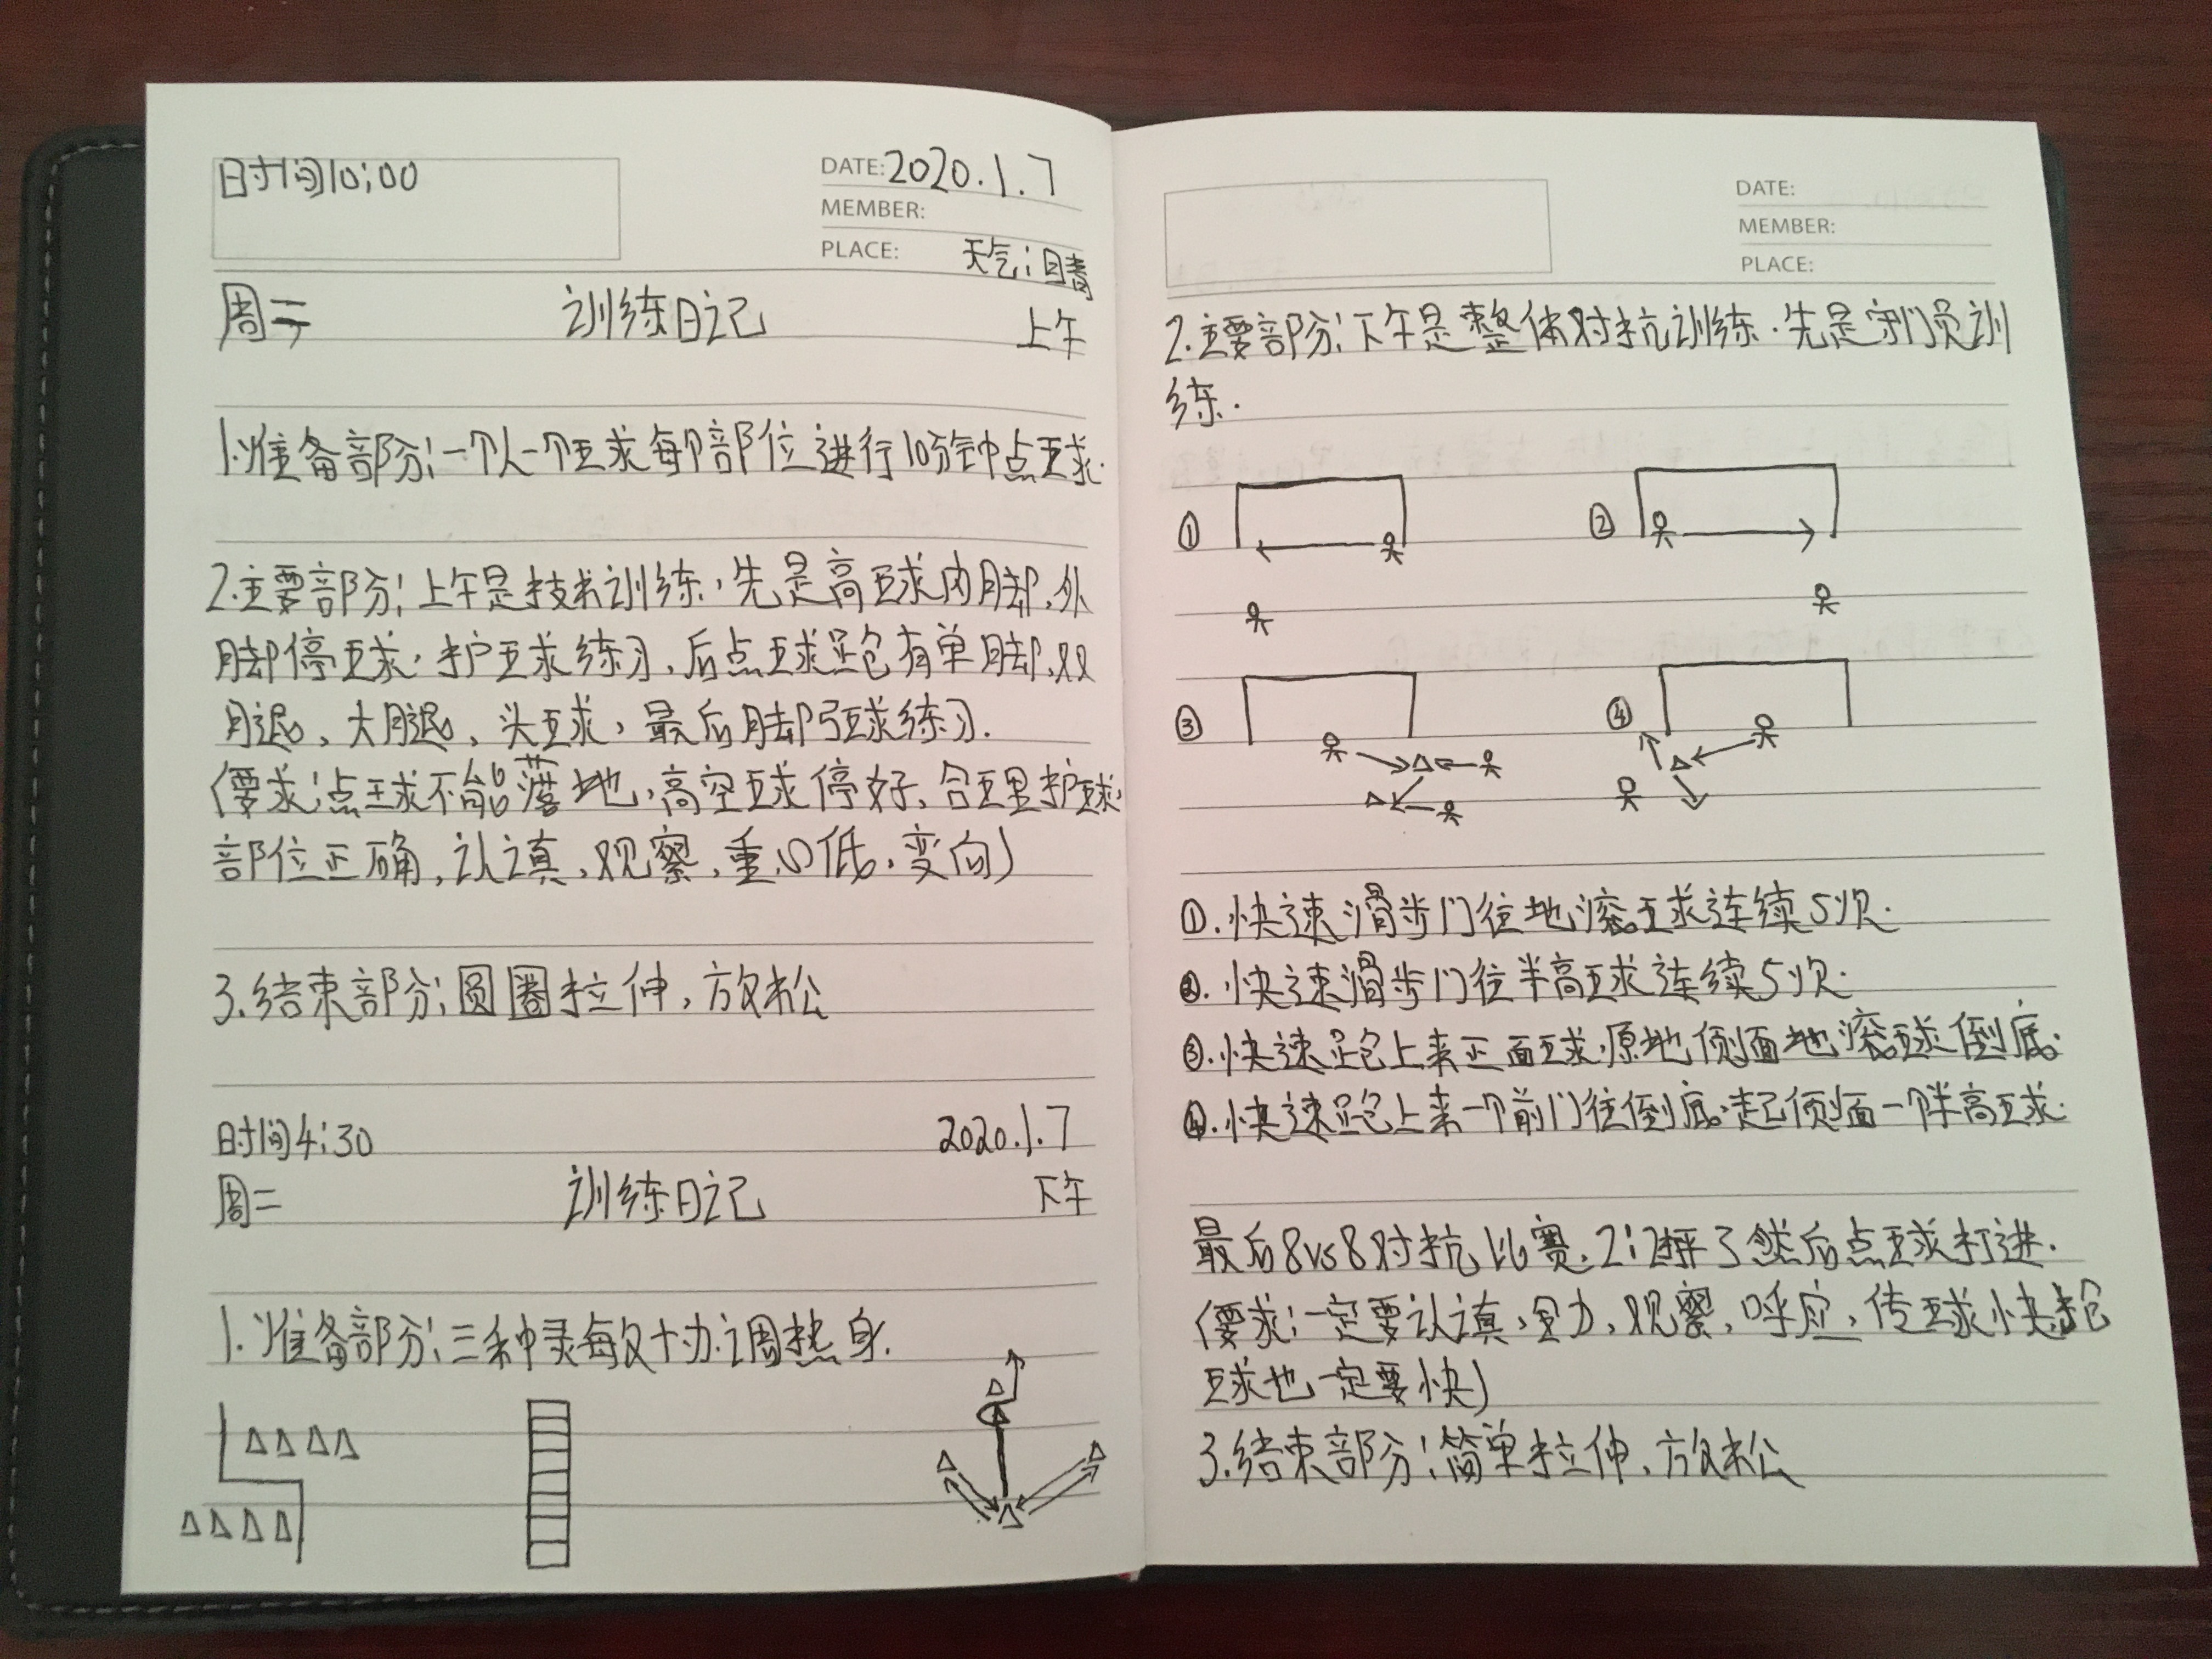 时间10:00
DATE:2020.1.7
MEMBER:
PLACE:
天气:晴
周二
训练日记
上午
1.准备部分:一个人一个球每个部位进行10分钟点球.
2.主要部分:上午是技术训练,先是高球内脚、外
脚停球.护球练习、后点球跑有单脚、双
腿、大腿、头球,最后脚弓球练习.
(要求:点球不能落地,高空球停好、合理护球,
部位正确,认真、观察、重心低、变向)
3.结束部分:圆圈拉伸、放松
时间4:30
2020.1.7
周二
训练日记
下午
1.准备部分:三种灵敏十办调热身.
DATE:
MEMBER:
PLACE:
2.主要部分:下午是整体对抗训练.先是守门员训
练.
①
②
③
④
①.快速滑步门往地滚球连续5次.
②.快速滑步门往半高球连续5次.
③.快速跑上来正面球,原地侧面地滚球倒底.
④.快速跑上来一个前门往倒底.起侧面一个半高球.
最后8vs8对抗比赛.2:2平了然后点球打进.
(要求:一定要认真、全力、观察、呼应、传球快抢
球也一定要快)
3.结束部分:简单拉伸、放松